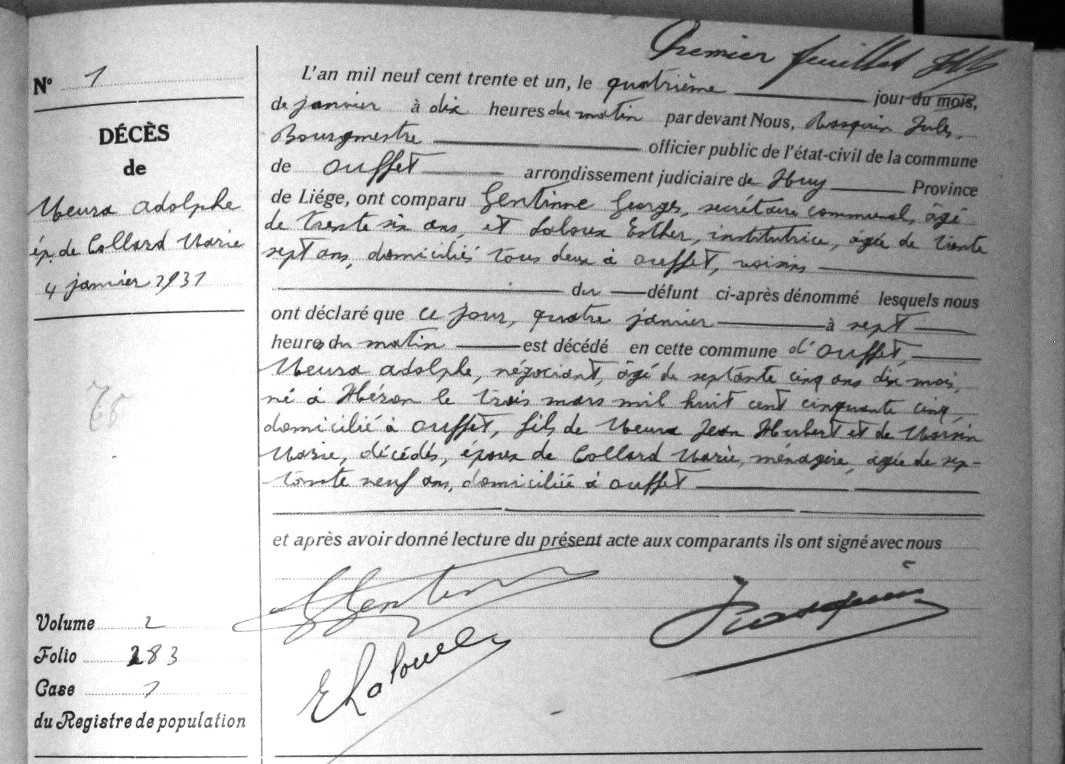 Premier feuillet
N° 1
DÉCÈS
de
Meura Adolphe
ép. de Collard Marie
4 janvier 1931
L'an mil neuf cent trente et un, le quatrième jour du mois,
de janvier à dix heures du matin par devant Nous, Rasquin Jules,
Bourgmestre officier public de l'état-civil de la commune
de Ouffet arrondissement judiciaire de Huy Province
de Liége, ont comparu Gentinne Georges, secrétaire communal, âgé
de trente six ans, et Laloux Esther, institutrice, âgée de trente
sept ans, domiciliés tous deux à Ouffet, voisins
du défunt ci-après dénommé lesquels nous
ont déclaré que ce jour, quatre janvier à sept
heures du matin est décédé en cette commune d'Ouffet,
Meura Adolphe, négociant, âgé de septante cinq ans dix mois,
né à Héron le trois mars mil huit cent cinquante cinq,
domicilié à Ouffet, fils de Meura Jean Hubert et de
Marie, décédés, époux de Collard Marie, ménagère, âgée de sep-
tante neuf ans, domiciliée à Ouffet
et après avoir donné lecture du présent acte aux comparants ils ont signé avec nous
GGentinne
JRasquin
ELaloux
Volume 2
Folio 283
Case 1
du Registre de population
75